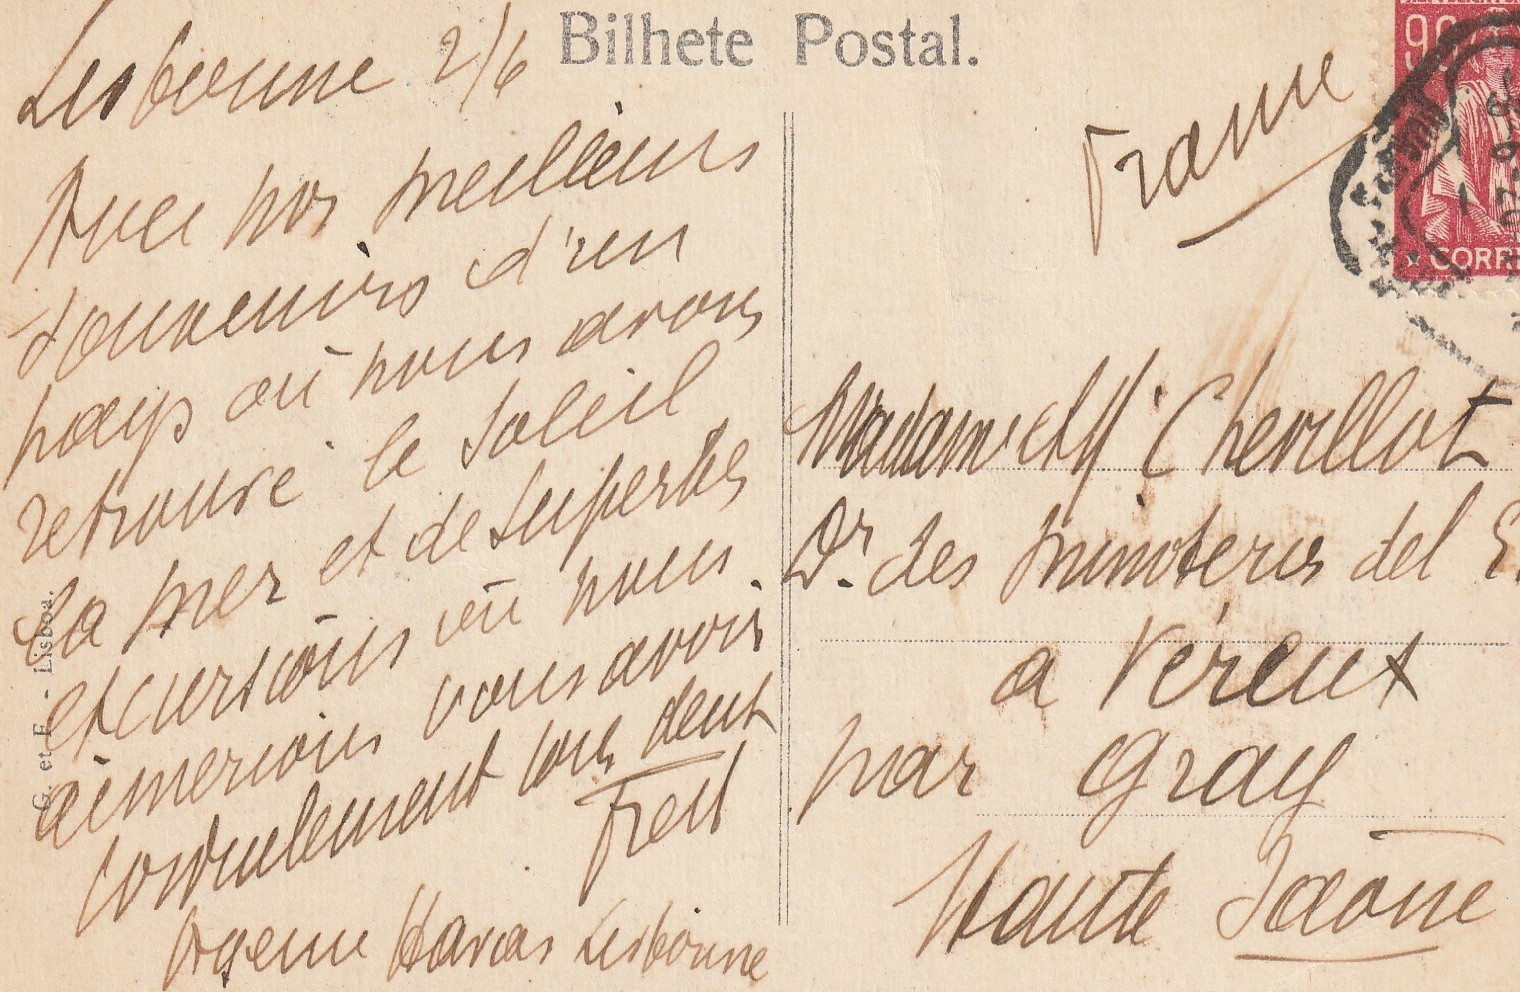 Bilhete Postal.
Lisbonne 2/6
Avec nos meilleurs
souvenirs d'un
pays où nous avons
retrouvé le soleil
la mer et de superbes
excursions où nous
aimerions vous avoir
cordialement tous deux
Agence Havas Lisbonne
G. et F. - Lisboa.
France
CORRE
Madame et M. Chevillot
Dr. des minoteries de l'E.
à Véreux
par Gray
Haute Saône